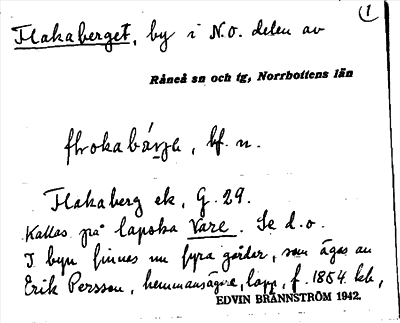 ①
Flakaberget, by i N.O. delen av
Råneå sn och tg, Norrbottens län
bf. n.
Flakaberg ek, G. 29.
Kallas på lapska Vare. Se d.o.
I byn finnes nu fyra gårdar, som ägas av
Erik Persson, hemmansägare, lapp, f. 1864
EDVIN BRÄNNSTRÖM 1942.